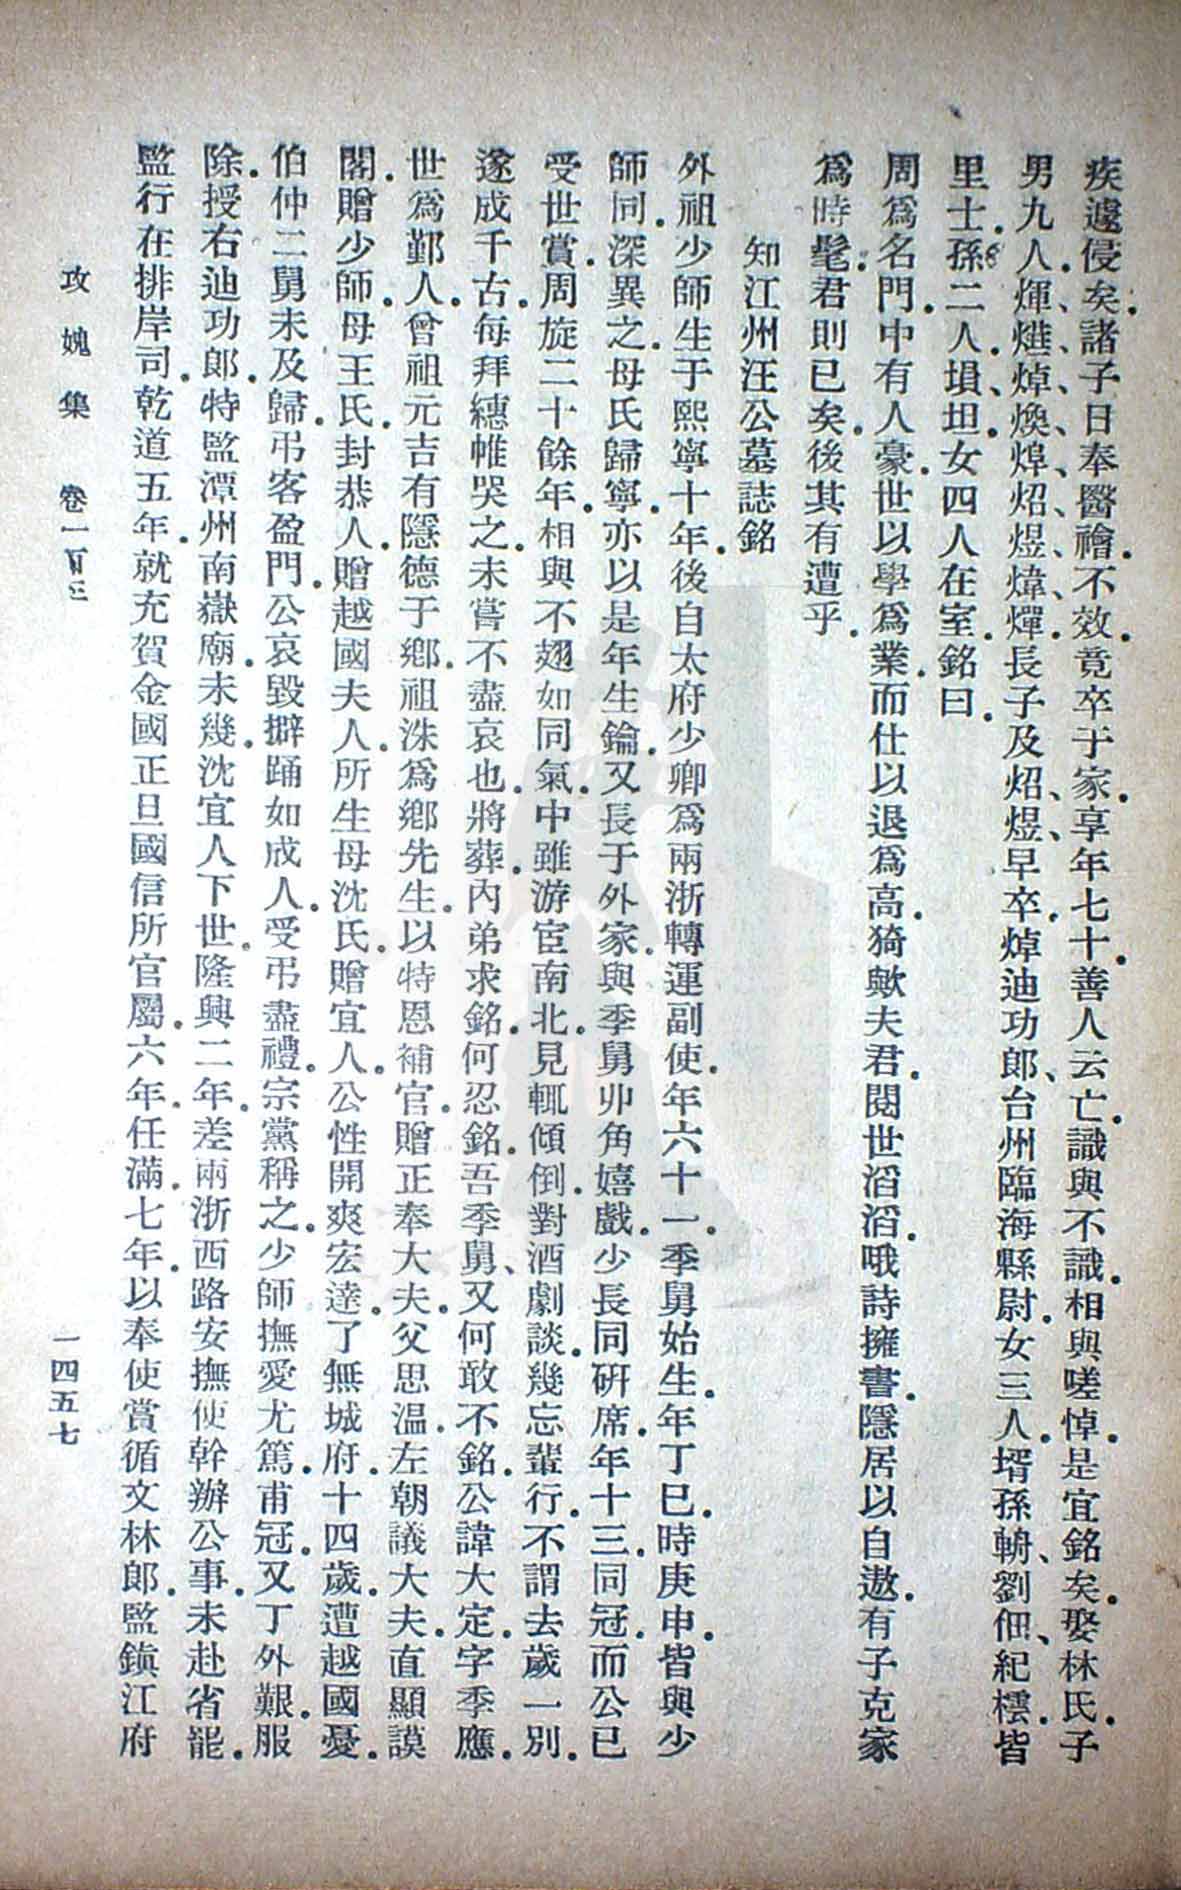 疾遽侵矣.諸子日奉醫禬.不效.竟卒于家.享年七十.善人云亡.識與不識.相與嗟悼.是宜銘矣.娶林氏.子
男九人.煇、㷸、焯、煥、焞、炤、煜、煒、燀.長子及炤、煜早卒.焯迪功郎、台州臨海縣尉.女三人.壻孫、劉佃、紀橒.皆
里士.孫二人.塤、坦.女四人在室.銘曰.
周爲名門.中有人豪.世以學爲業.而仕以退爲高.猗歟夫君.閱世滔滔.哦詩擁書.隱居以自遨.有子克家
爲時髦.君則已矣.後其有遭乎.
知江州汪公墓誌銘
外祖少師生于熙寧十年.後自太府少卿爲兩浙轉運副使.年六十一.季舅始生.年丁巳.時庚申.皆與少
師同.深異之.母氏歸寧.亦以是年生鑰.又長于外家.與季舅丱角嬉戲.少長同研席.年十三.同冠.而公已
受世賞.周旋二十餘年.相與不翅如同氣.中雖游宦南北.見輒傾倒.對酒劇談.幾忘輩行.不謂去歲一別.
遂成千古.每拜繐帷哭之.未嘗不盡哀也.將葬.內弟求銘.何忍銘吾季舅、又何敢不銘.公諱大定.字季應.
世爲鄞人.曾祖元吉有隱德于鄉.祖洙爲鄉先生.以特恩補官.贈正奉大夫.父思溫.左朝議大夫.直顯謨
閣.贈少師.母王氏.封恭人.贈越國夫人.所生母沈氏.贈宜人.公性開爽宏達.了無城府.十四歲.遭越國憂.
伯仲二舅未及歸.弔客盈門.公哀毀擗踊如成人.受弔盡禮.宗黨稱之.少師撫愛尤篤.甫冠.又丁外艱.服
除.授右迪功郎.特監潭州南嶽廟.未幾.沈宜人下世.隆興二年.差兩浙西路安撫使幹辦公事.未赴省罷.
監行在排岸司.乾道五年.就充賀金國正旦國信所官屬.六年.任滿.七年.以奉使賞循文林郎.監鎭江府
攻媿集　卷一百三　一四五七